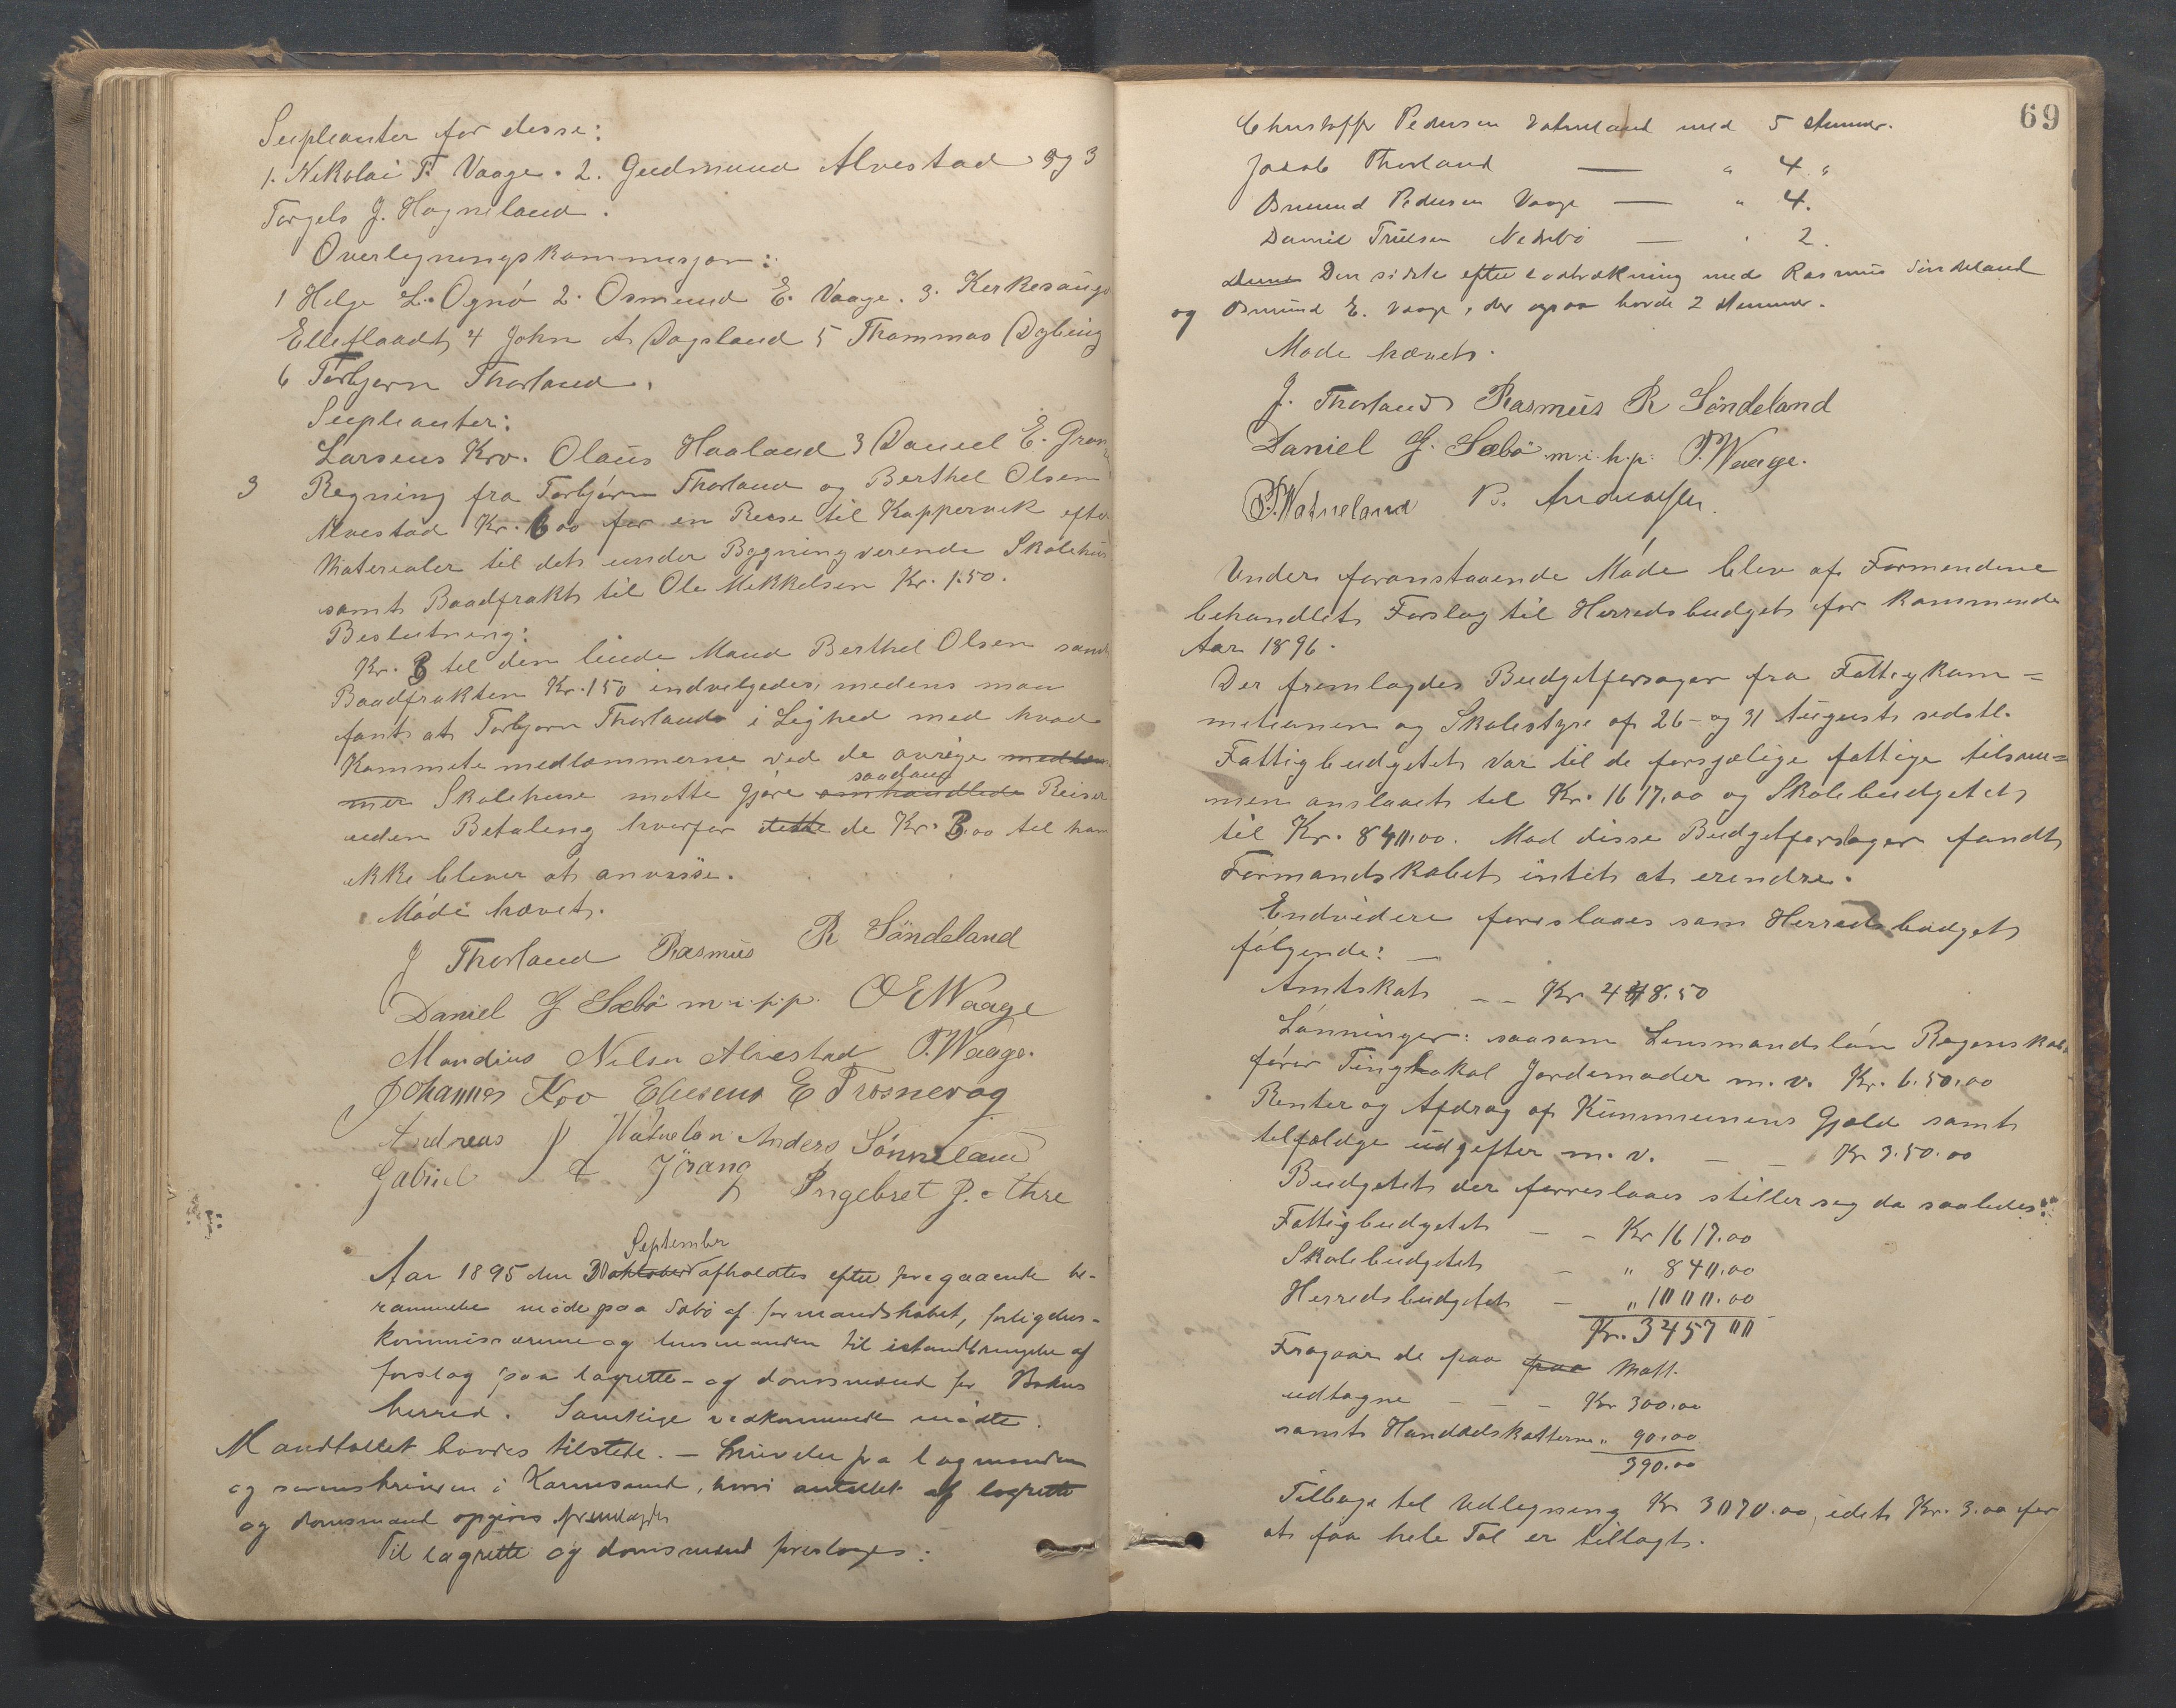 Supleanter for desse:
1. Nikolai T. Vaage. 2. Gudmund Alvestad og 3
Torgels J. Hagneland.
Overlegningskommisjon:
1 Helge L. Ognø 2. Osmund E. Vaage. 3. Kerkesanger
Elleflaadt, 4 John A. Dagsland 5 Thommas Dybing
6 Torbjørn Thorland.
Supleanter:
Larseus Kro. Olaus Haaland 3 Daniel E. Grøn
3 Regning fra Torbjørn Thorland og Berthel Olsen
Alvestad Kr. 6.00 for en Reise til Koppervik efter
Materialer til det under Bygning verende Skolehus
samt Baadfrakt til Ole Mikkelsen Kr. 1.50.
Beslutning:
Kr. 3 til den leiede Mand Berthel Olsen samt
Baadfrakten Kr. 1.50 indvelgedes, medens man
fant at Torbjørn Thorland i Lighed med hvad
Kommitemedlommerne ved de øvrige medlem
mer Skolehuse motte gjøre omhandlede saadane Reiser
uden Betaling hvorfor dette de Kr. 3.00 til ham
ikke blever at anvisse.
Møde hævet.
J Thorland Rasmus R Söndeland
Daniel G Sæbø m.i.p.p. O E Waage
Mandius Nilsen Alvestad P. Waage.
Johannes Kro Eliseus E Trosnevag
Andreas P Watnelan Anders Sönneland
Gabriel Jørang Ingebret J. Øthre
September
Aar 1895 den 30 oktober afholdtes efter foregaaende be-
rammelse møde paa Søbø af formandskabet, forligelses-
kommissærerne og lensmanden til istandbringelse af
forslag paa lagrette- og domsmænd for Bokns
herred. Samtlige vedkommende mødte.
Mandtallet havdes tilstede. – Skrivelse fra lagmanden
og sorenskriveren i Karmsund, hvori antallet af lagrette
og domsmænd opgives fremlagdes
Til lagrette og domsmænd foreslages:
69
Christoffer Pedersen Vatneland med 5 stemmer.
Jakob Thorland — " 4 "
Osmund Pedersen Vaage — " 4.
Daniel Trulsen Nedrebö — " 2.
Denne Den sidste efter lodtrækning med Rasmus Söndeland
og Osmund E. Vaage, der ogsaa havde 2 stemmer.
Møde hævet.
J. Thorland Rasmus R Söndeland
Daniel G. Sæbø m.i.h.p. P. Waage.
P. Watneland B. Andreassen.
Under foranstaaende Møde blev af Formendene
behandlet Forslag til Herredsbudget for kommende
Aar 1896.
Der fremlagdes Budgetforsager fra Fattigkom=
mitionen og Skolestyre af 26- og 31 August sidstl.
Fattigbudgetet var til de forsjælige fattige tilsam=
men anslaaet til Kr. 1617.00 og Skolebudgetet
til Kr. 840.00. Mod disse Budgetforslager fandt
Formandskabet intet at erendre.
Endvidere foreslaaes som Herredsbudget
følgende: —
Amtskat – – Kr 448.50
Lønninger: saasom Lensmandsløn Regnskabs
fører Tinglokal Jordemoder m.v. Kr. 6.50.00
Renter og Afdrag af Kummunens Gjæld samt
telfældge udgifter m.v. – – Kr 3.50.00
Budgetet der forreslaaes stiller seg da saaledes:
Fattigbudgetet – – Kr 1617.00
Skolebudgetet – " 840.00
Herredsbudgetet – " 1000.00
Kr. 3457 00
Fragaar de paa paa Matt.
udtagne – – – Kr 300.00
samt Handelskatterne " 90.00
390.00
Tilbage til Udlegning Kr 3070.00, idet Kr. 3.00 for
at faa hele Tal er tillagt.